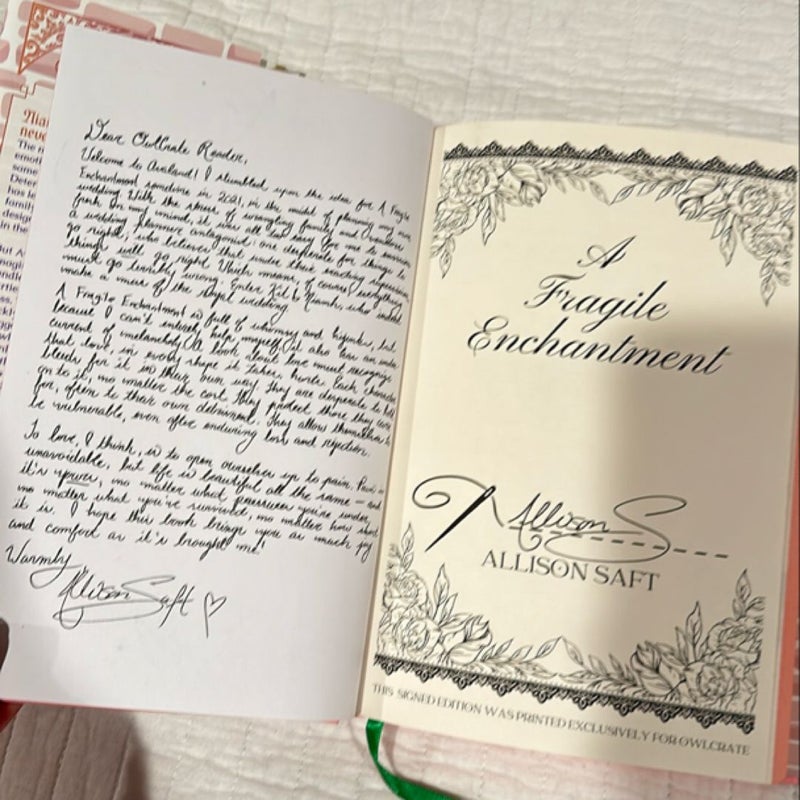 Dear OwlCrate Reader,
Welcome to Avaland! I stumbled upon the idea for A Fragile
Enchantment sometime in 2021, in the midst of planning my own
wedding. With the stress of wrangling family and vendors
fresh on my mind, it was all too easy for me to
a wedding planner antagonist: one desperate for things to
go right, who believes that under their exacting supervision,
things will go right. Which means, of course, everything
must go terribly wrong. Enter Kit & Niamh, who indeed
make a mess of the royal wedding.
A Fragile Enchantment is full of whimsy and hijinks, but
because I can't entirely help myself, it also has an under
current of melancholy. A book about love must recognize
that love, in every shape it takes, hurts. Each character
bleeds for it in their own way. They are desperate to hold
on to it, no matter the cost. They protect those they care
for, often to their own detriment. They allow themselves to
be vulnerable, even after enduring loss and rejection.
To love, I think, is to open ourselves up to pain. Pain is
unavoidable, but life is beautiful all the same — and
it's yours, no matter what pressures you're under,
no matter what you've survived, no matter how short
it is. I hope this book brings you as much joy
and comfort as it's brought me!
Warmly,
Allison Saft
A
Fragile
Enchantment
Allison S
ALLISON SAFT
THIS SIGNED EDITION WAS PRINTED EXCLUSIVELY FOR OWLCRATE